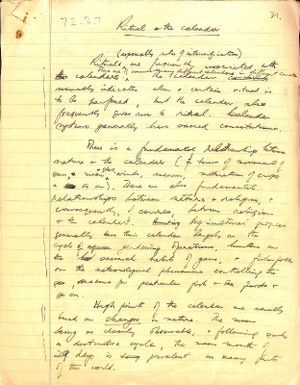 72.3.7
31.
Ritual & the calendar
(especially rites of intensification)
Rituals are frequently associated with
calendars. The calendar
usually indicates when a certain ritual is
to be performed, but the calendar also
frequently gives rise to ritual. Calendar
systems generally have sacred connotations.
There is a fundamental relationship between
nature & the calendar (in terms of movement of
sun, moon & stars, winds, seasons, maturation of crops
& so on). There are also fundamental
relationships between nature & religion, &
consequently, of course, between religion
& the calendar. Agricultural peoples
generally base their calendar largely on the
cycle of gardening operations, hunters on
the seasonal habits of game, & fisherfolk
on the meteorological phenomena controlling the
sea, seasons for particular fish & the foods &
so on.
High points of the calendar are usually
based on changes in nature. The moon
being so clearly observable, & following such
a distinctive cycle, the moon month of
29 days is very prevalent in many parts
of the world.